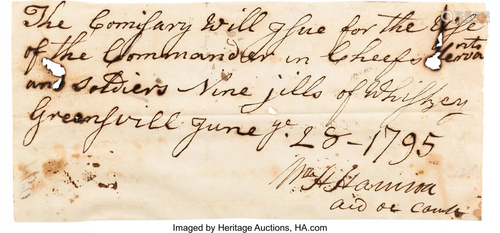 The Comisary Will Issue for the Use
of the Commander in Cheefs Serva nts
and Soldiers Nine jills of Whiskey
Greensvill June ye. 28 - 1795
Wm H Harrison
aid de camp
Imaged by Heritage Auctions, HA.com